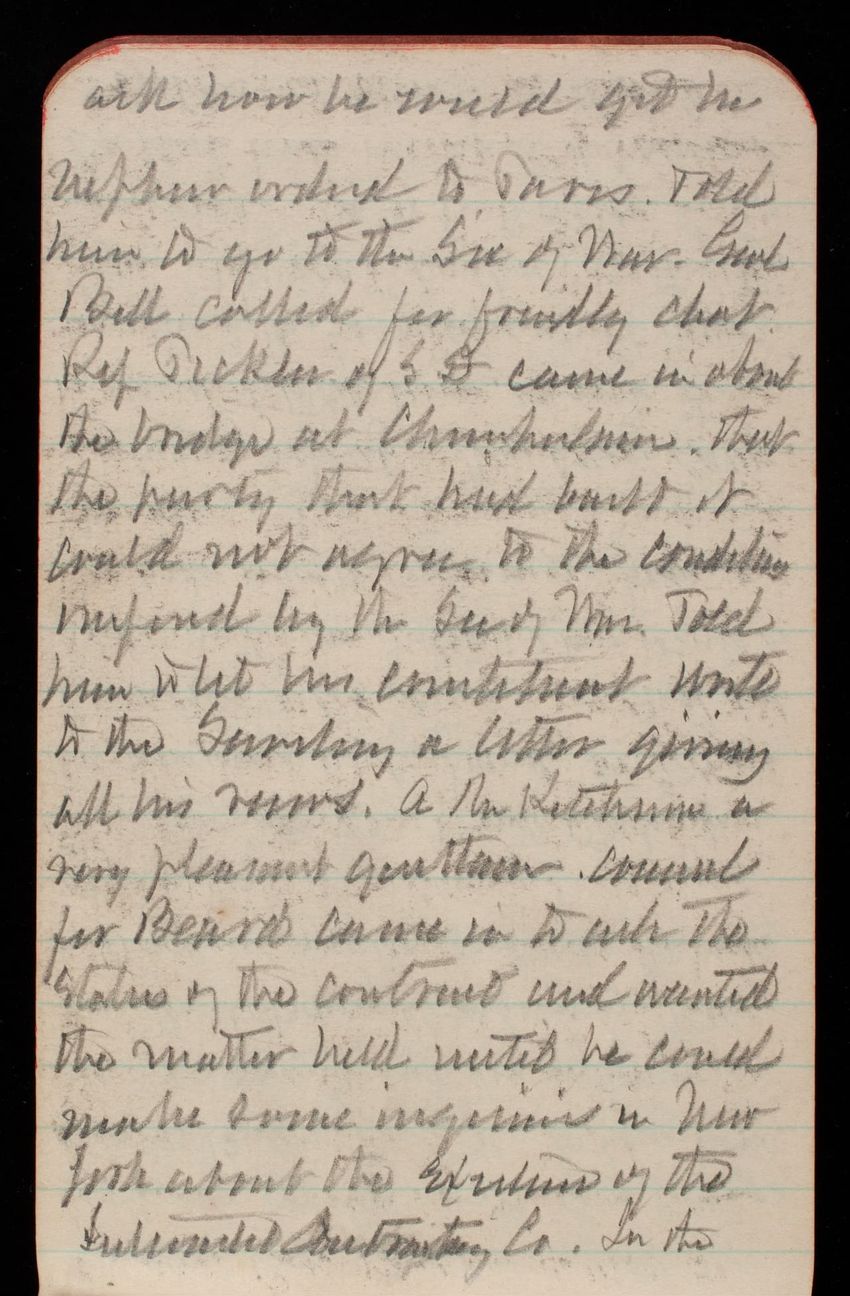 ask how he could get his
nephew ordered to Paris. Told
him to go to the Sec of War. Genl
Bell called for friendly chat.
Rep Pickler of S D came in about
the bridge at Chamberlain. that
the party that had built it
could not agree to the conditions
imposed by the Sec of War. Told
him to let his constituent write
to the Secretary a letter giving
all his reasons. A Mr Ketchum a
very pleasant gentleman. counsel
for Beard came in to ask the
status of the contract and wanted
the matter held until he could
make some inquiries in New
York about the of the
Contracting Co. In the